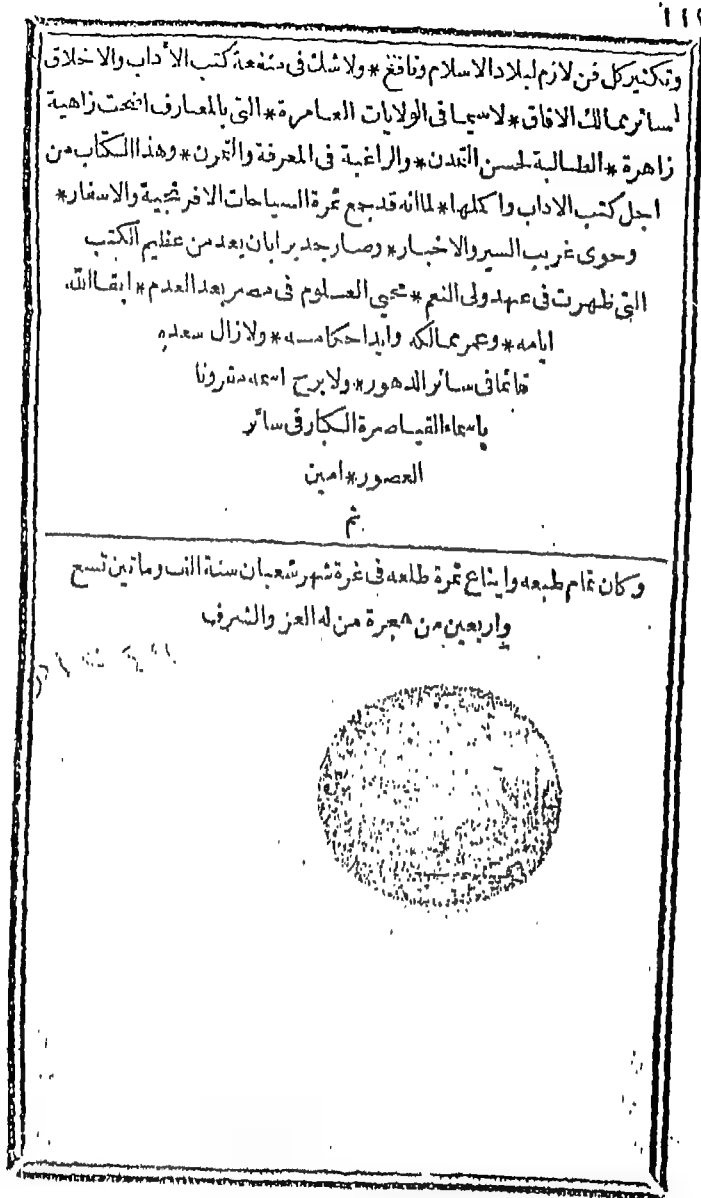 وتكثير كل فن لازم لبلاد الاسلام ونافع * ولا شك فى منفعة كتب الأداب والاخلاق
لسائر ممالك الافاق * لاسيما فى الولايات العامرة * التى بالمعارف اضحت زاهية
زاهرة * الطالبة لحسن التمدن * والراغبة فى المعرفة والتمرن * وهذا الكتاب من
اجل كتب الاداب واكملها * لما انه قد جمع ثمرة السياحات الافرنجية والاسفار *
وحوى غريب السير والاخبار * وصار جديرا بان يعد من عظيم الكتب
التى ظهرت فى عهد ولى النعم * محيى العلوم فى مصر بعد العدم * ابقا الله
ايامه * وعمر ممالكه وايد احكامه * ولا زال سعده
قائما فى سائر الدهور * ولا برح اسمه مقرونا
باسماء القياصرة الكبار فى سائر
العصور * امين
تم
وكان تمام طبعه وايناع ثمرة طلعه فى غرة شهر شعبان سنة الف وماتين تسع
واربعين من هجرة من له العز والشرف